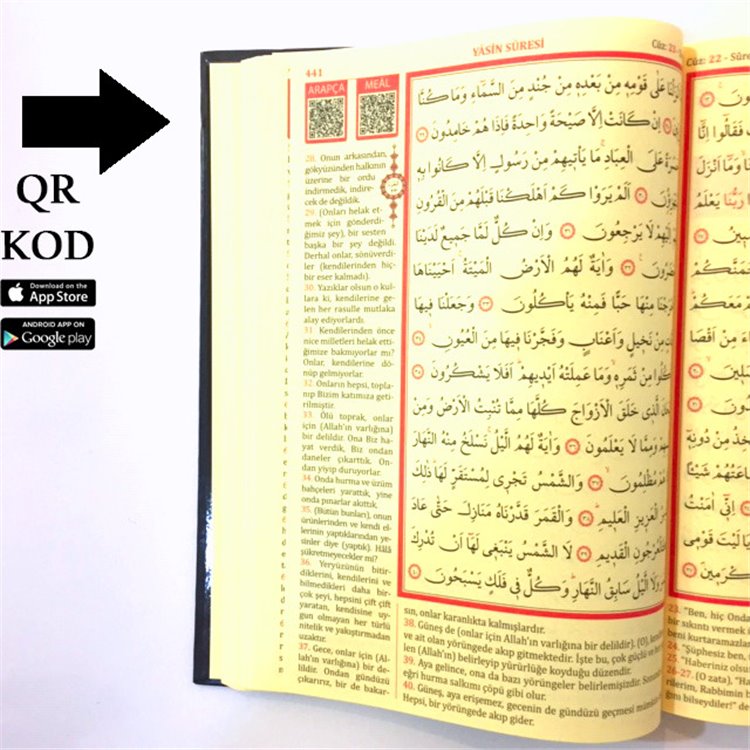 QR
KOD
Download on the
App Store
ANDROID APP ON
Google play
441
YÂSİN SÛRESİ
Cüz: 23
ARAPÇA
MEÂL
28. Onun arkasından,
gökyüzünden halkının
üzerine bir ordu
indirmedik, indire-
cek de değildik.
29. (Onları helak et-
mek için gönderdi-
ğimiz şey), bir sesten
başka bir şey değildi.
Derhal onlar, sönüverdi-
ler (kendilerinden hiç-
bir eser kalmadı).
30. Yazıklar olsun o kul-
lara ki, kendilerine ge-
len her rasulle mutlaka
alay ediyorlardı.
31. Kendilerinden önce
nice milletleri helak etti-
ğimize bakmıyorlar mı?
Onlar, kendilerine dö-
nüp gelmiyorlar.
32. Onların hepsi, topla-
nıp Bizim katımıza geti-
rilmiştir.
33. Ölü toprak, onlar
için (Allah'ın varlığına)
bir delildir. Ona Biz ha-
yat verdik, Biz ondan
daneler çıkarttık. On-
dan yiyip duruyorlar.
34. Onda hurma ve üzüm
bahçeleri yarattık, yine
onda pınarlar akıttık.
35. (Bütün bunları), onun
ürünlerinden ve kendi el-
lerinin yaptıklarından ye-
sinler diye (yaptık). Hâlâ
şükretmeyecekler mi?
36. Yeryüzünün bitir-
diklerini, kendilerini ve
bilmedikleri daha bir-
çok şeyi, hepsini çift çift
yaratan, kendisine uy-
gun olmayan her türlü
nitelik ve yakıştırmadan
uzaktır.
37. Gece, onlar için (Al-
lah'ın varlığına) bir de-
lildir. Ondan gündüzü
çıkarırız, bir de bakar-
عَلٰى قَوْمِهٖ مِنْ بَعْدِهٖ مِنْ جُنْدٍ مِنَ السَّمَٓاءِ وَمَا كُنَّا
اِنْ كَانَتْ اِلَّا صَيْحَةً وَاحِدَةً فَاِذَا هُمْ خَامِدُونَ
عَلَى الْعِبَادِۚ مَا يَأْتٖيهِمْ مِنْ رَسُولٍ اِلَّا كَانُوا بِهٖ
اَلَمْ يَرَوْا كَمْ اَهْلَكْنَا قَبْلَهُمْ مِنَ الْقُرُونِ
اِلَيْهِمْ لَا يَرْجِعُونَ وَاِنْ كُلٌّ لَمَّا جَمٖيعٌ لَدَيْنَا
وَاٰيَةٌ لَهُمُ الْاَرْضُ الْمَيْتَةُۚ اَحْيَيْنَاهَا
مِنْهَا حَبًّا فَمِنْهُ يَأْكُلُونَ وَجَعَلْنَا فٖيهَا
مِنْ نَخٖيلٍ وَاَعْنَابٍ وَفَجَّرْنَا فٖيهَا مِنَ الْعُيُونِۙ
مِنْ ثَمَرِهٖۙ وَمَا عَمِلَتْهُ اَيْدٖيهِمْۜ اَفَلَا يَشْكُرُونَ
الَّذٖي خَلَقَ الْاَزْوَاجَ كُلَّهَا مِمَّا تُنْبِتُ الْاَرْضُ وَمِنْ
وَمِمَّا لَا يَعْلَمُونَ وَاٰيَةٌ لَهُمُ الَّيْلُۚ نَسْلَخُ مِنْهُ النَّهَارَ
مُظْلِمُونَۙ وَالشَّمْسُ تَجْرٖي لِمُسْتَقَرٍّ لَهَاۜ ذٰلِكَ
الْعَزٖيزِ الْعَلٖيمِۜ وَالْقَمَرَ قَدَّرْنَاهُ مَنَازِلَ حَتّٰى عَادَ
كَالْعُرْجُونِ الْقَدٖيمِ لَا الشَّمْسُ يَنْبَغٖي لَهَٓا اَنْ تُدْرِكَ
وَلَا الَّيْلُ سَابِقُ النَّهَارِۜ وَكُلٌّ فٖي فَلَكٍ يَسْبَحُونَ
sın, onlar karanlıkta kalmışlardır.
38. Güneş de (onlar için Allah'ın varlığına bir delildir). (O), kendi
ve ait olan yörüngede akıp gitmektedir. İşte bu, çok güçlü ve her
len (Allah'ın) belirleyip yürürlüğe koyduğu düzendir.
39. Aya gelince, ona da bazı yörüngeler belirlemişizdir. Sonunda
eğri hurma salkımı çöpü gibi olur.
40. Güneş, aya erişemez, gecenin de gündüzü geçmesi mümkün
Hepsi, bir yörüngede akıp gider.
Cüz: 22 - Sûre
فَقَالُٓوا اِنَّٓا
وَمَٓا اَنْزَلَ
رَبُّنَا يَعْلَمُ
مِنْ اَقْصَا
مِنْ دُونِهٖٓ
شَيْـًٔا
اِنّٖٓي اٰمَنْتُ
يَا لَيْتَ قَوْمٖي
23. "Ben, hiç Onda
bir sıkıntı vermek
beni kurtaramazlar
24. "Şüphesiz ben,
25. "Haberiniz olsun
26-27. (O zata), "Ha
rilerim, Rabbimin b
ğini bilseydiler!" de